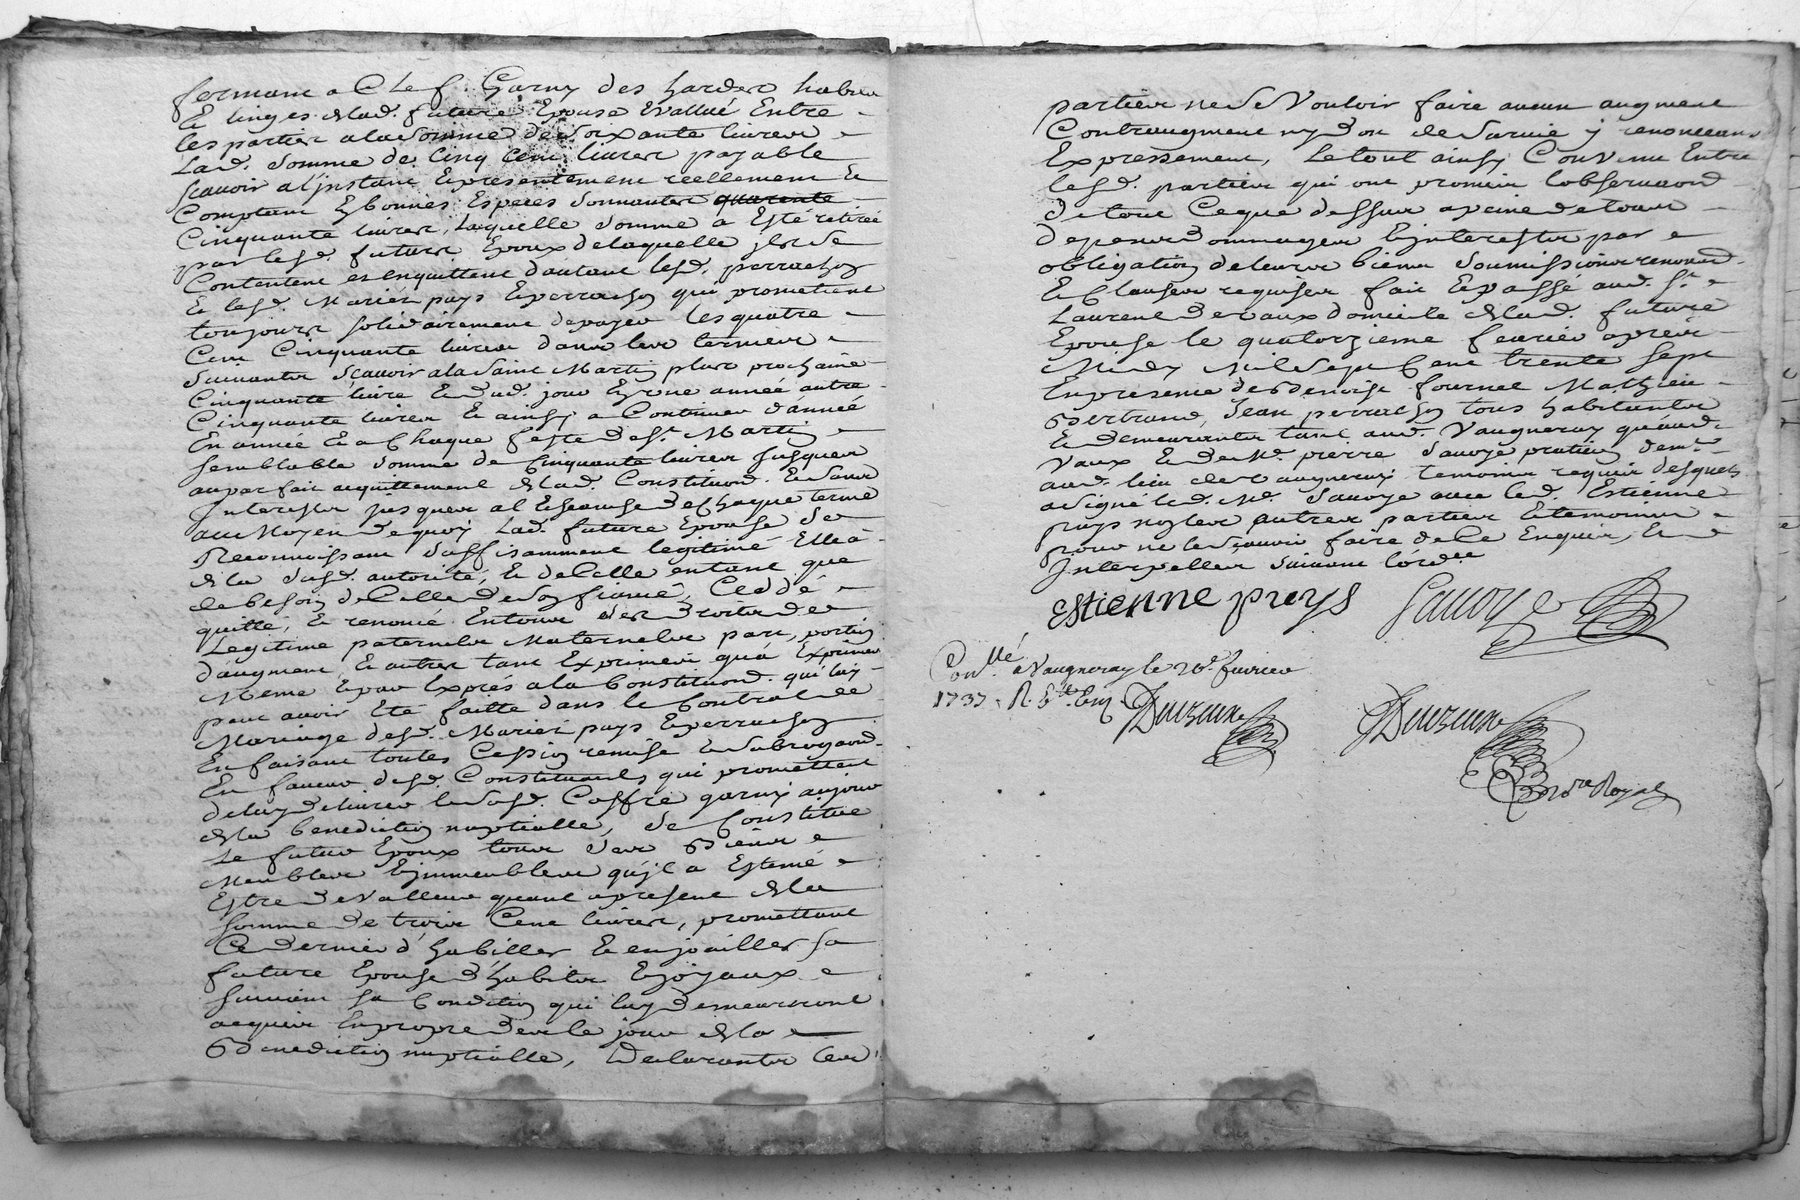 fermant a Clef Garny des hardes habits
Et linges de lad. future Epouse Evallué Entre
les parties a la somme de soixante livres
Lad. somme de Cinq Cent livres payable
scavoir a l'jnstant Epresentement reellement Et
Comptant En bonnes Especes sonnantes quarente
Cinquante livres, Laquelle somme a Esté retirée
par lesd. futurs Epoux de laquelle jls se
Contentent et enquittent d'autant lesd. perrachon
Et lesd. Mariés puys Eperrachon qui promettent
toujours solidairement de payer les quatre
Cent Cinquante livres dans les termes
suivants scavoir a la saint Martin plus prochaine
Cinquante livre Et dud. jour En une année autre
Cinquante livres Et ainsy a Continuer d'année
En année Et a Chaque feste de St. Martin
semblable somme de Cinquante livres jusques
au parfait acquittement de lad. Constitu[]. Et sans
Interests jusques a l'Echeance de Chaque terme
au Moyen de quoy Lad. future Epouse se
Reconnoissant suffisamment legitimé Elle a
de la susd. autorité, Et de Celle entant que
de besoin de Celle de son fiancé, Ceddé
quitté, Et renoncé Entous ses droits de
Legitime paternels Maternels part, portion
d'augment Et autres tant Exprimés qu'a Exprimer
Meme Epar Exprés a la Constitu[]. qui luy
peut avoir Eté faitte dans le Contrat de
Mariage desd. Mariés puys Eperrachon
En faisant toutes Cession remise Et subrogaon.
En faveur desd. Constituants qui promettent
de luy delivrer le susd. Coffre garny au jour
de la benediction nuptialle, se Constitue
Le futur Epoux tous ses Biens
Meubles Ejmmeubles qu'jl a Estimé
Estre de valleur quant apresent de la
somme de trois Cent livres, promettant
Ce dernier d'habiller Et enjoailler sa
future Epouse d'habits Ejoyaux
suivant sa Condition qui luy demeureront
acquis En propre des le jour de la
Benediction nuptialle, Declarants les
parties ne se Vouloir faire aucun augment
Contraugment ny don de survie y renonceants
Expressement, Le tout ainsy Convenu Entre
lesd. parties qui ont promis l'observaon
de tout Ceque dessus a peine de tous
depens dommages Ejnterests par
obligation de leurs biens soumissions renonaon.
Et Clauses requises fait Epassé aud. St.
Laurent de vaux domicile de lad. future
Epouse le quatorzieme fevrier aprés
Midy Mil sept Cent trente sept
En presence de [] fournel Mathieu
Bertrand, Jean perrachon tous habitants
Et demeurants tant aud. Vaugneray qu'aud.
Vaux Et de Me. pierre Savoye praticien demt.
aud. lieu de Vaugneray temoins requis desquels
a signé led. Me. Savoye avec led. Estienne
puys non les autres parties Et temoins
pour ne le sçavoir faire de Ce Enquis, Et
Interpellés suivant l'ordce
Estienne puys Savoye
Conllé. a Vaugneray le 26e. fevrier
1737. R.
No.re Royal